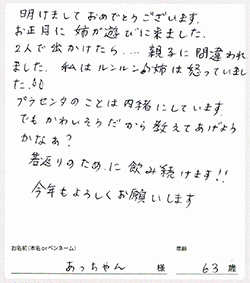 明けましておめでとうございます.
お正月に姉が遊びに来ました.
2人で出かけたら....親子に間違われ
ました. 私はルンルン♪姉は怒っていまし
た.
プラセンタのことは内緒にしています.
でもかわいそうだから教えてあげよう
かなぁ?
若返りのために飲み続けます!!
今年もよろしくお願いします
お名前(本名orペンネーム) 年齢
あっちゃん 様 63 歳